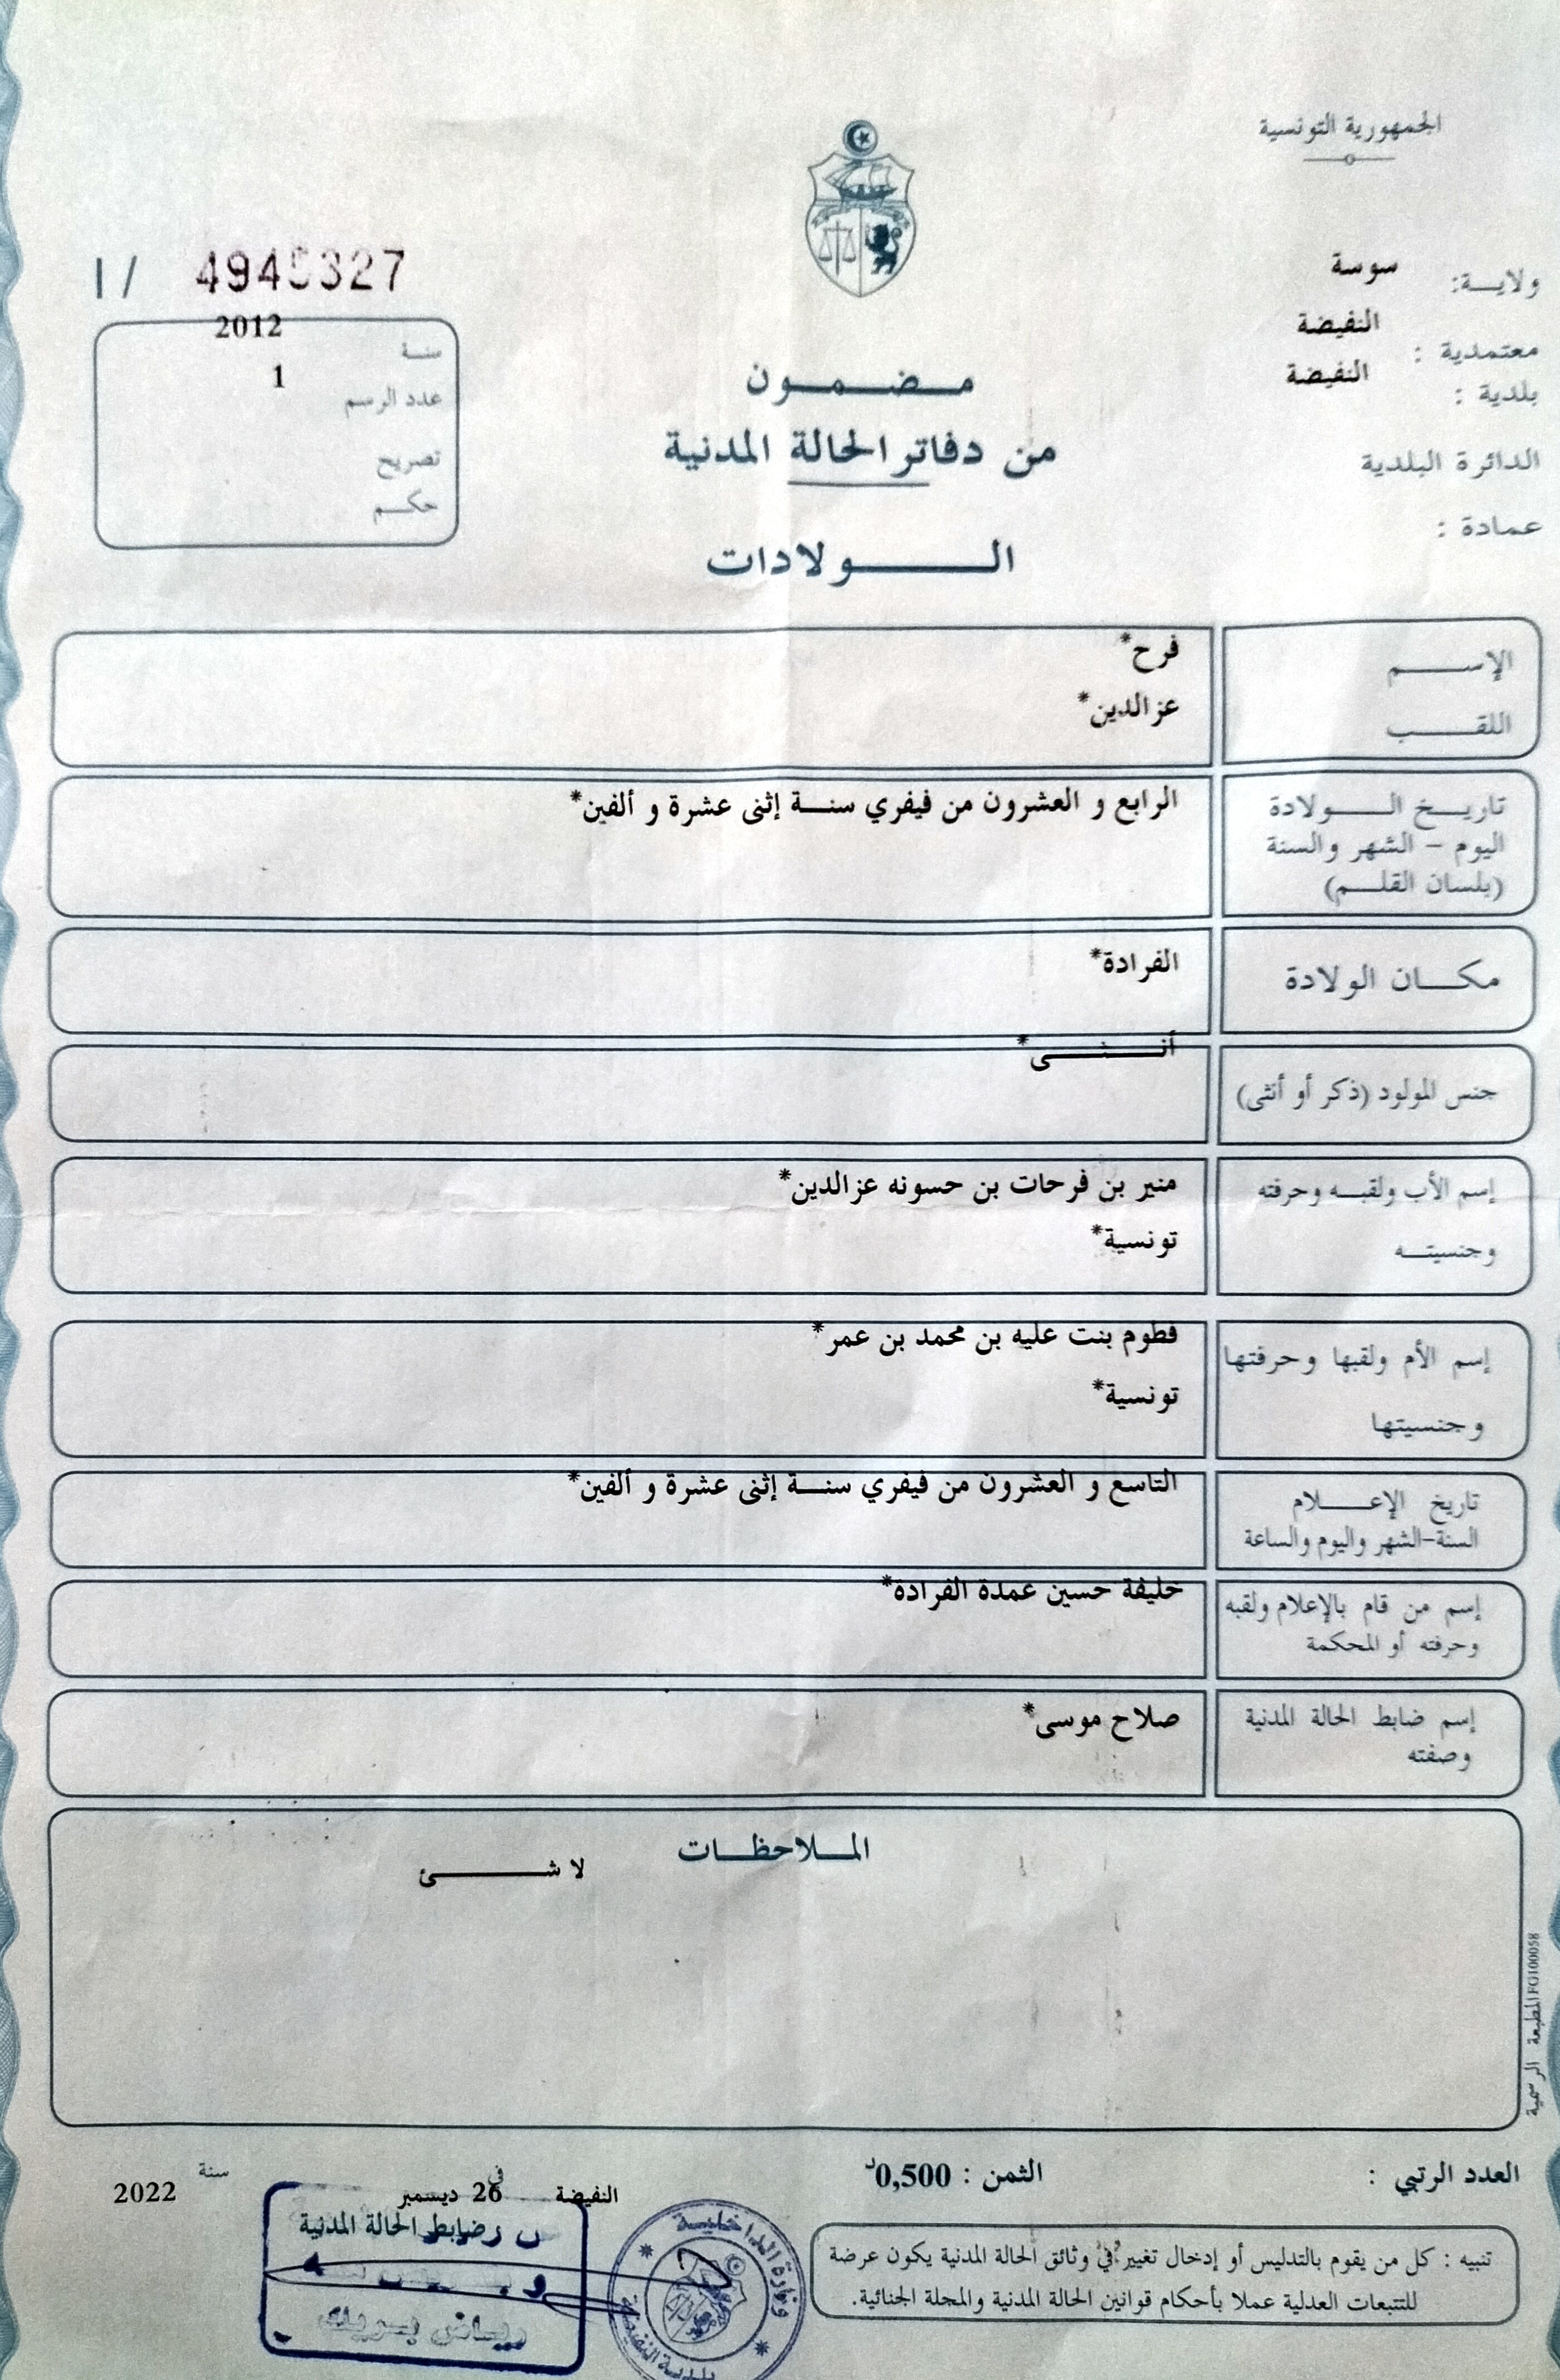 الجمهورية التونسية
ولاية: سوسة
معتمدية : النفيضة
بلدية : النفيضة
الدائرة البلدية
عمادة :
I / 4945327
سنة 2012
عدد الرسم 1
تصريح
حكم
مضمون
من دفاتر الحالة المدنية
الولادات
الإسم فرح*
اللقب عزالدين*
تاريخ الولادة الرابع و العشرون من فيفري سنة إثنى عشرة و ألفين*
اليوم - الشهر والسنة
(بلسان القلم)
مكان الولادة الفرادة*
جنس المولود (ذكر أو أنثى) أنثى*
إسم الأب ولقبه وحرفته منير بن فرحات بن حسونه عزالدين*
وجنسيته تونسية*
إسم الأم ولقبها وحرفتها فطوم بنت عليه بن محمد بن عمر*
وجنسيتها تونسية*
تاريخ الإعلام التاسع و العشرون من فيفري سنة إثنى عشرة و ألفين*
السنة-الشهر واليوم والساعة
إسم من قام بالإعلام ولقبه خليفة حسين عمدة الفرادة*
وحرفته أو المحكمة
إسم ضابط الحالة المدنية صلاح موسى*
وصفته
الملاحظات
لا شئ
المطبعة الرسمية FG100058
العدد الرتبي :
الثمن : 0,500د
النفيضة في 26 ديسمبر سنة 2022
ضابط الحالة المدنية
وزارة الداخلية
بلدية النفيضة
تنبيه : كل من يقوم بالتدليس أو إدخال تغيير في وثائق الحالة المدنية يكون عرضة
للتتبعات العدلية عملا بأحكام قوانين الحالة المدنية والمجلة الجنائية.